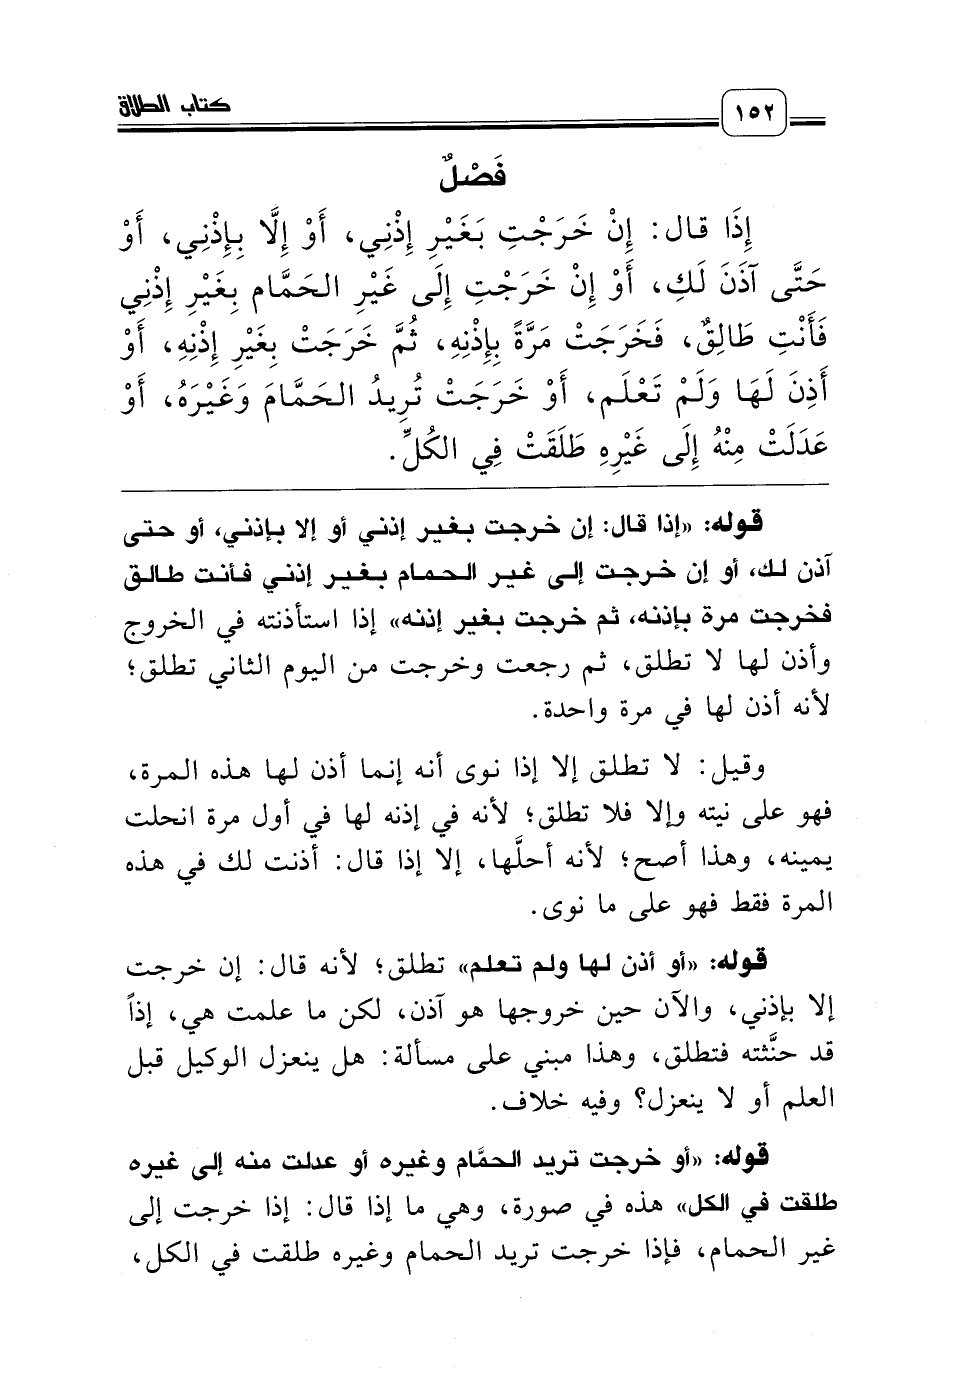 ١٥٢
كتاب الطلاق
فَصْلٌ
إِذَا قال: إِنْ خَرَجْتِ بَغَيْرِ إِذْنِي، أَوْ إِلَّا بِإِذْنِي، أَوْ
حَتَّى آذَنَ لَكِ، أَوْ إِنْ خَرَجْتِ إِلَى غَيْرِ الحَمَّام بِغَيْرِ إِذْنِي
فَأَنْتِ طَالِقٌ، فَخَرَجَتْ مَرَّةً بِإِذْنِهِ، ثُمَّ خَرَجَتْ بِغَيْرِ إِذْنِهِ، أَوْ
أَذِنَ لَهَا وَلَمْ تَعْلَم، أَوْ خَرَجَتْ تُرِيدُ الحَمَّامَ وَغَيْرَهُ، أَوْ
عَدَلَتْ مِنْهُ إِلَى غَيْرِهِ طَلَقَتْ فِي الكُلِّ.
قوله: «إذا قال: إن خرجت بغير إذني أو إلا بإذني، أو حتى
آذن لك، أو إن خرجت إلى غير الحمام بغير إذني فأنت طالق
فخرجت مرة بإذنه، ثم خرجت بغير إذنه» إذا استأذنته في الخروج
وأذن لها لا تطلق، ثم رجعت وخرجت من اليوم الثاني تطلق؛
لأنه أذن لها في مرة واحدة.
وقيل: لا تطلق إلا إذا نوى أنه إنما أذن لها هذه المرة،
فهو على نيته وإلا فلا تطلق؛ لأنه في إذنه لها في أول مرة انحلت
يمينه، وهذا أصح؛ لأنه أحلَّها، إلا إذا قال: أذنت لك في هذه
المرة فقط فهو على ما نوى.
قوله: «أو أذن لها ولم تعلم» تطلق؛ لأنه قال: إن خرجت
إلا بإذني، والآن حين خروجها هو آذن، لكن ما علمت هي، إذاً
قد حنَّثته فتطلق، وهذا مبني على مسألة: هل ينعزل الوكيل قبل
العلم أو لا ينعزل؟ وفيه خلاف.
قوله: «أو خرجت تريد الحمَّام وغيره أو عدلت منه إلى غيره
طلقت في الكل» هذه في صورة، وهي ما إذا قال: إذا خرجت إلى
غير الحمام، فإذا خرجت تريد الحمام وغيره طلقت في الكل،